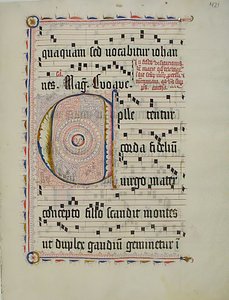 quaquam sed vocabitur iohan
nes. Mag. Euouae.
plle tentur
corda fideliū
virgo mater
concepto filio scandit montes
ut duplex gaudiū geminetur i